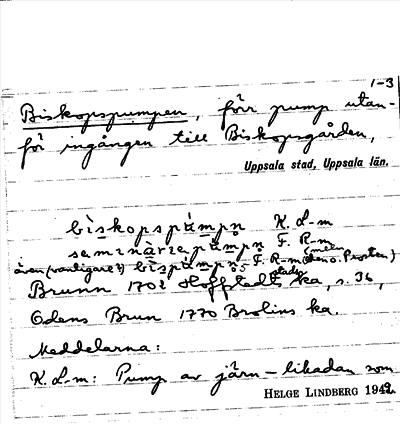 1-3
Biskopspumpen, förr pump utan-
för ingången till Biskopsgården,
Uppsala stad, Uppsala län.
biskopspàmpn K. L-m
seminàriepàmpn F. R-m
även (vanligare?) bispàmpn F. R-m
Brunn 1702 Hoffstedt ka, s. 36,
Odens Brun 1770 Brolins ka.
Meddelarna:
K. L-m: Pump av järn – likadan som
HELGE LINDBERG 1942.